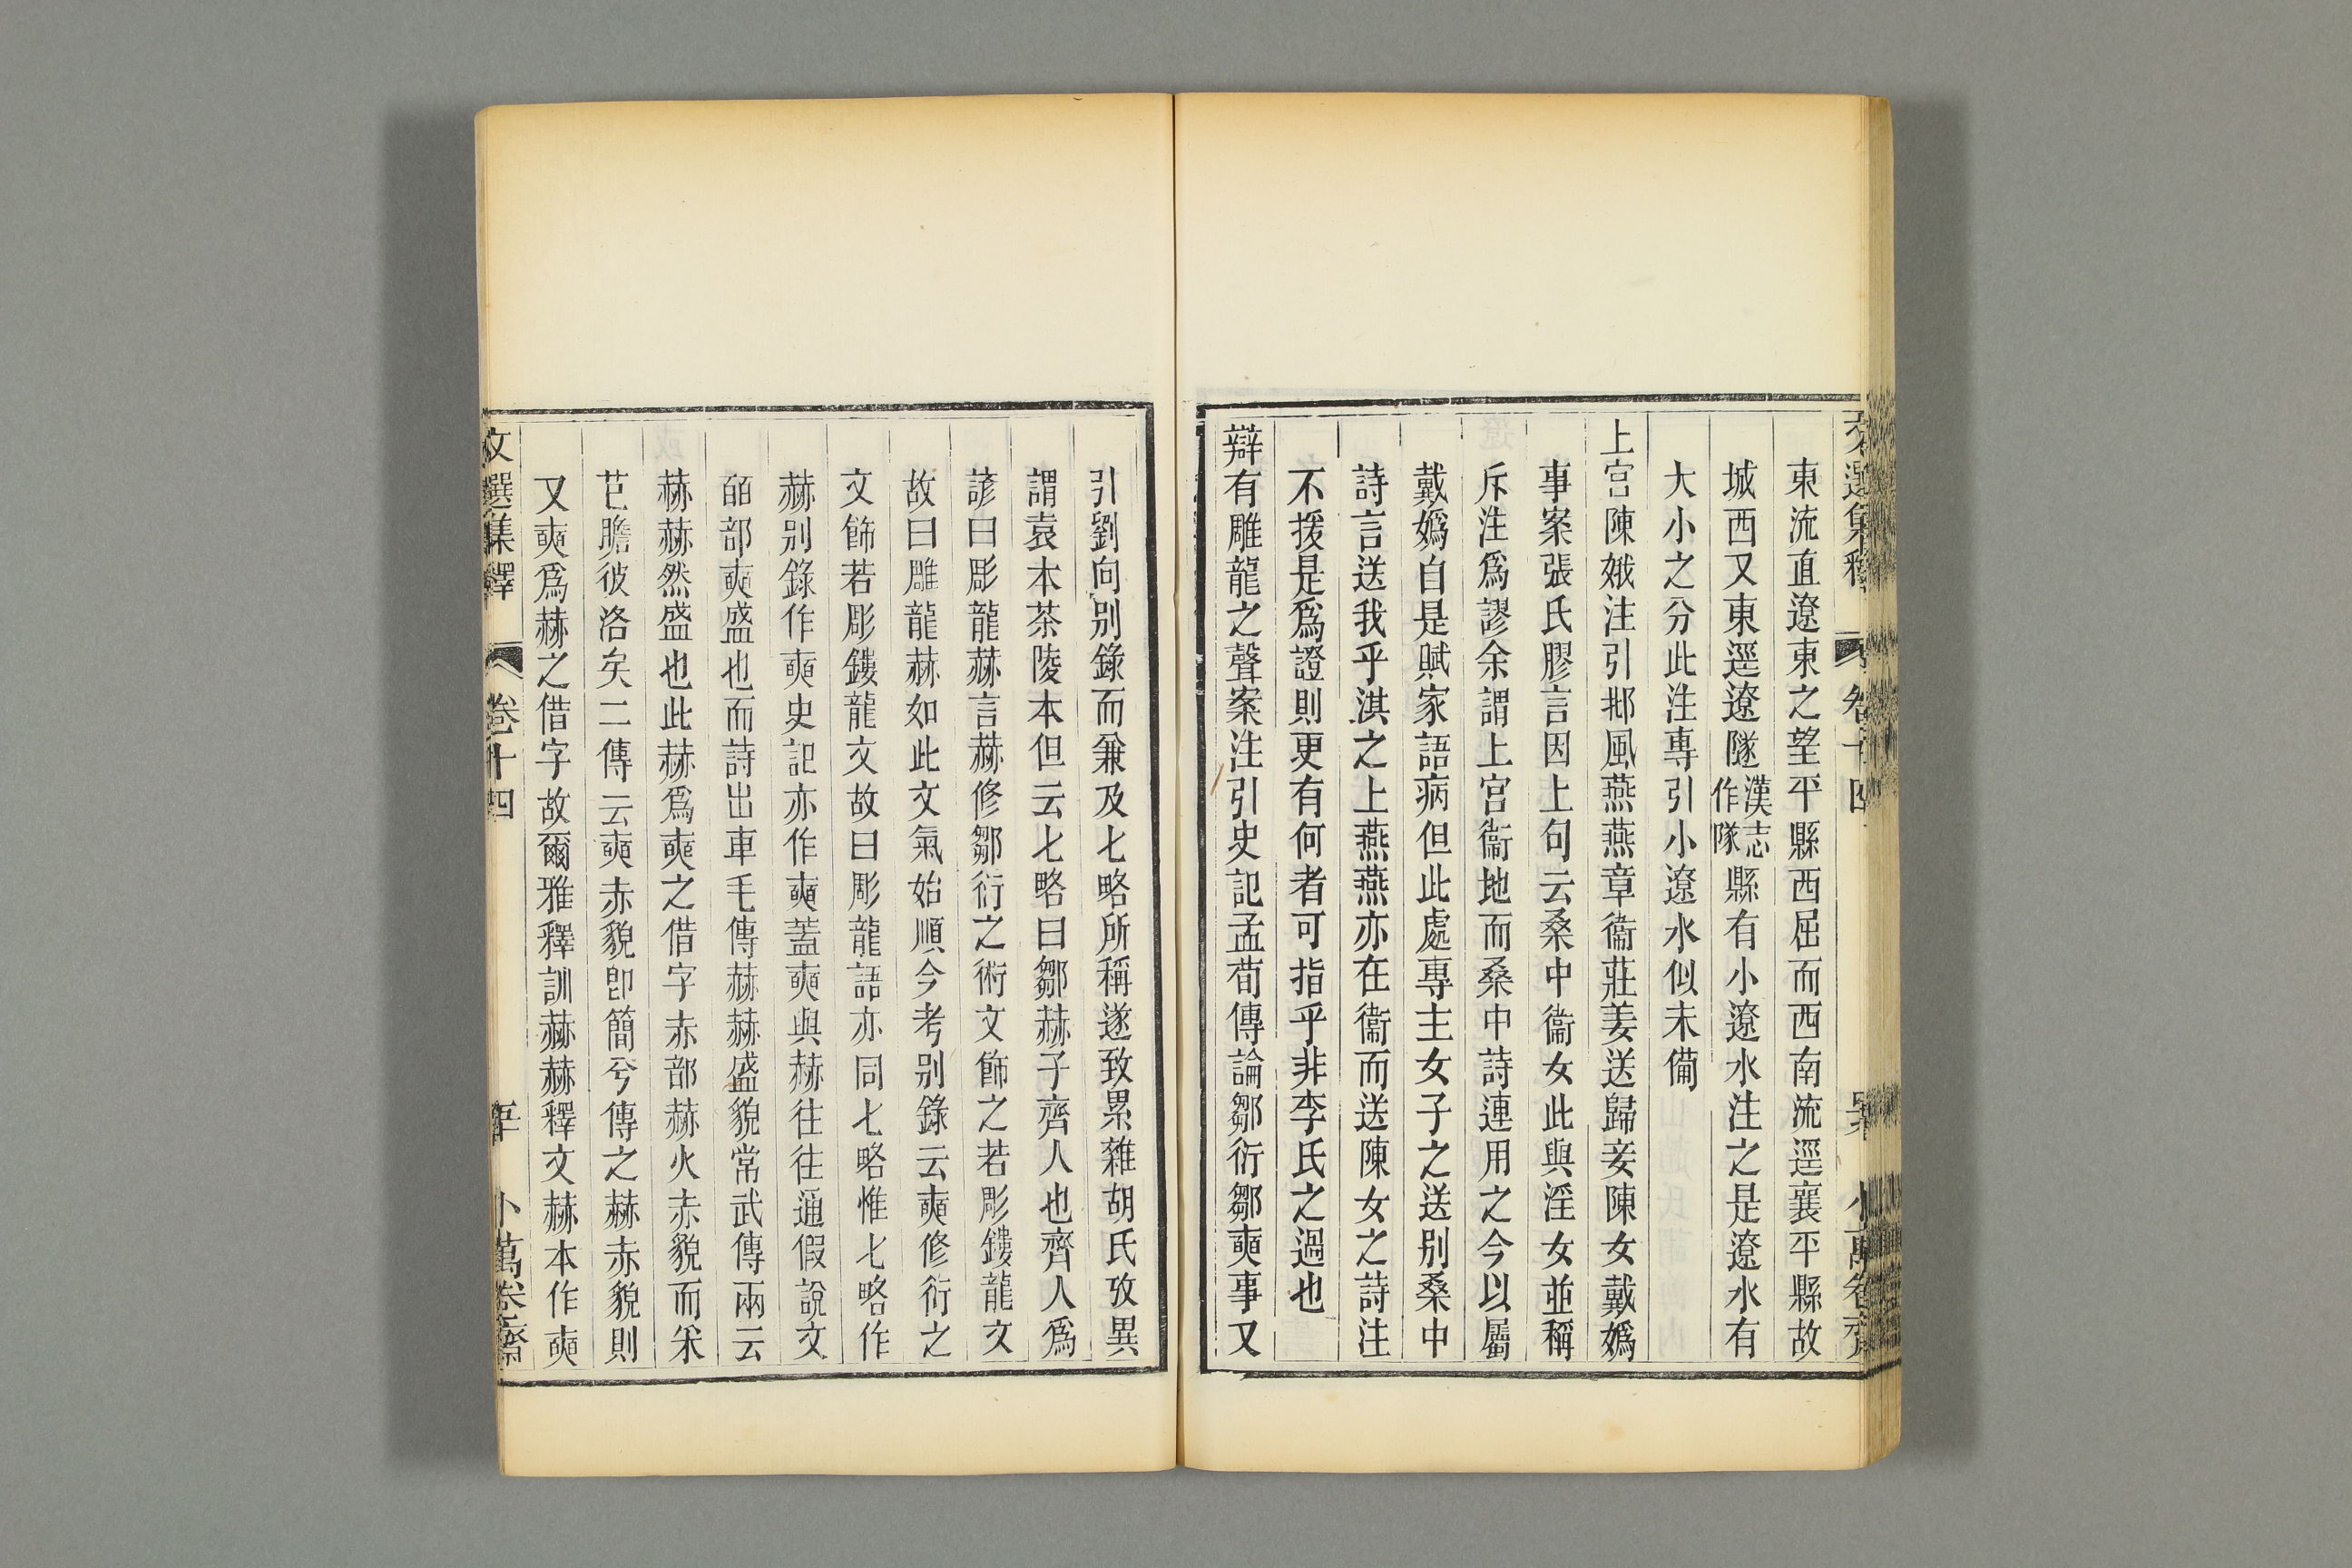 東流直遼東之望平縣西屈而西南流逕襄平縣故
城西又東逕遼隧漢志作隊縣有小遼水注之是遼水有
大小之分此注專引小遼水似未備
上宮陳娥注引邶風燕燕章衞莊姜送歸妾陳女戴嬀
事案張氏膠言因上句云桑中衞女此與淫女並稱
斥注爲謬余謂上宮衞地而桑中詩連用之今以屬
戴嬀自是賦家語病但此處專主女子之送别桑中
詩言送我乎淇之上燕燕亦在衞而送陳女之詩注
不援是爲證則更有何者可指乎非李氏之過也
辯有雕龍之聲案注引史記孟荀傳論鄒衍鄒奭事又
引劉向别錄而兼及七略所稱遂致累雜胡氏攷異
謂袁本茶陵本但云七略曰鄒赫子齊人也齊人爲
諺曰彫龍赫言赫修鄒衍之術文飾之若彫鏤龍文
故曰雕龍赫如此文氣始順今考别錄云奭修衍之
文飾若彫鏤龍文故曰彫龍語亦同七略惟七略作
赫别錄作奭史記亦作奭蓋奭與赫往往通假說文
皕部奭盛也而詩出車毛傳赫赫盛貌常武傳兩云
赫赫然盛也此赫爲奭之借字赤部赫火赤貌而釆
芑瞻彼洛矣二傳云奭赤貌卽簡兮傳之赫赤貌則
又奭爲赫之借字故爾雅釋訓赫赫釋文赫本作奭
文選集釋 卷十四 五十 小萬卷齋